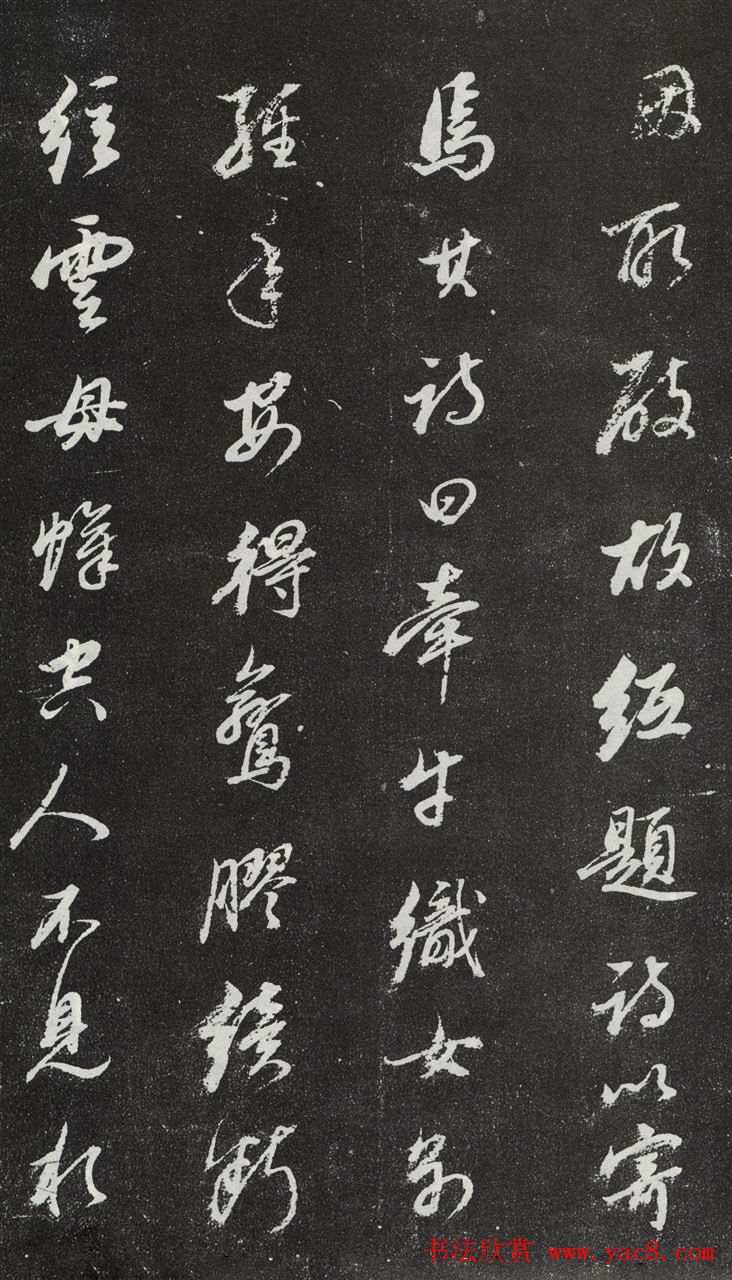 因取破故紙題詩以寄
焉其詩曰牽牛織女別
經年安得鸞膠續斷
絃雲母帳空人不見水
书法欣赏 www.yac8.com